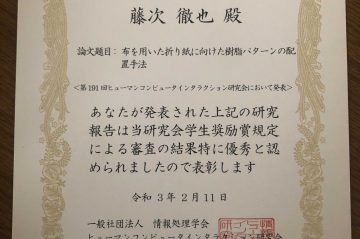 藤次 徹也 殿
論文題目： 布を用いた折り紙に向けた樹脂パターンの配
置手法
＜第191回ヒューマンコンピュータインタラクション研究会において発表＞
あなたが発表された上記の研究
報告は当研究会学生奨励賞規定
による審査の結果特に優秀と認
められましたので表彰します
令和３年２月11日
一般社団法人 情報処理学会
ヒューマンコンピュータインタラクション研究会